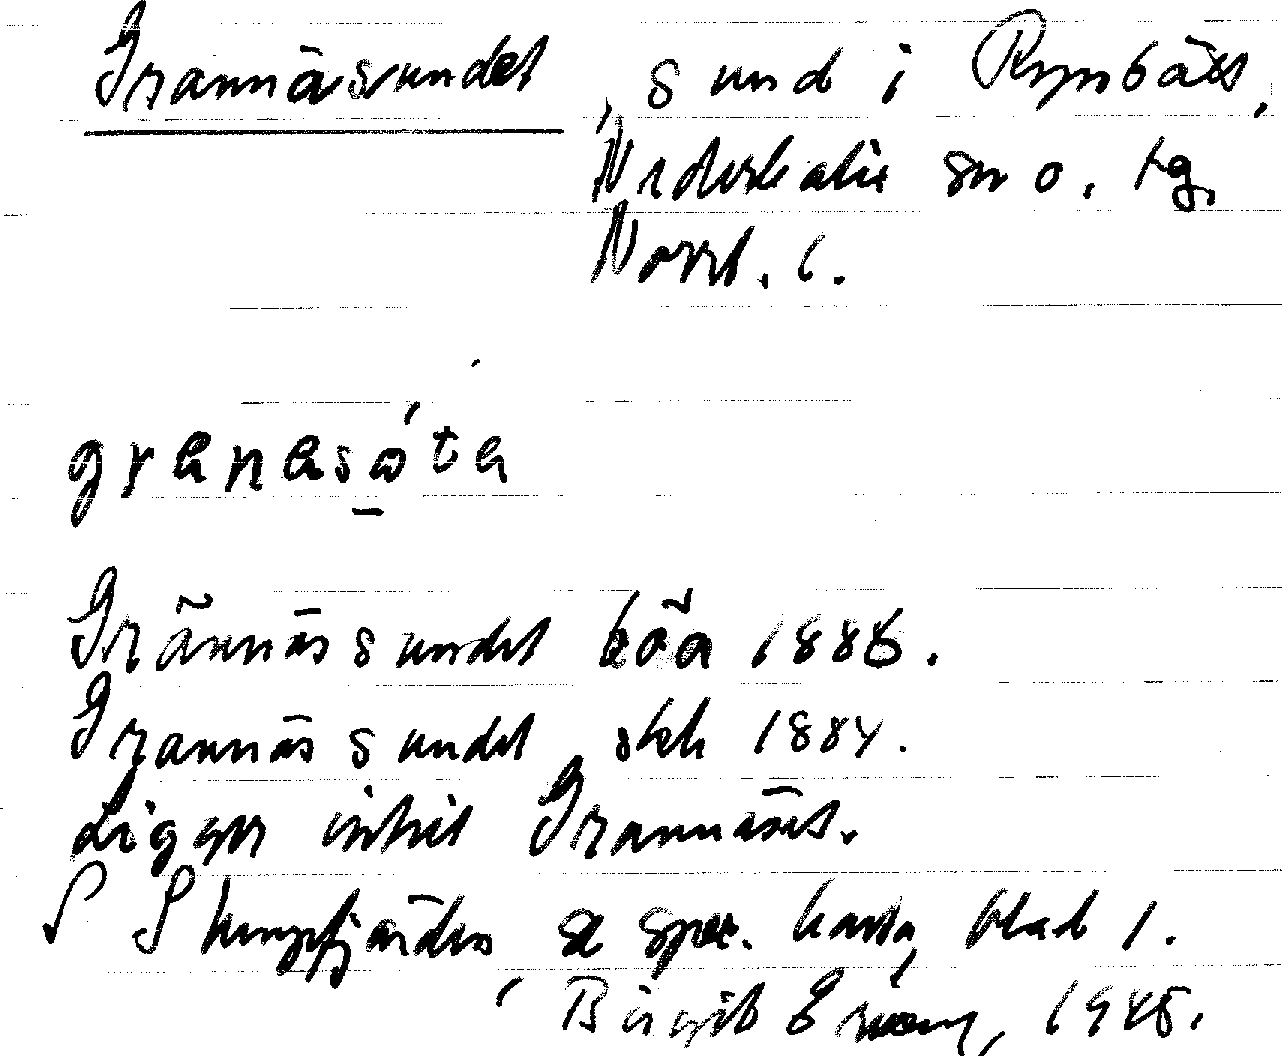 Grannäsundet, sund i Rynbäck,
Nederkalix sn o. tg,
Norrb. l.
granasǫ́ta
Grännäsundet böa 1886.
Grannäs sundet, skh 1884.
Ligger intill Grannäset.
S fjärden, se spec. karta, blad 1.
Birgit 1945.